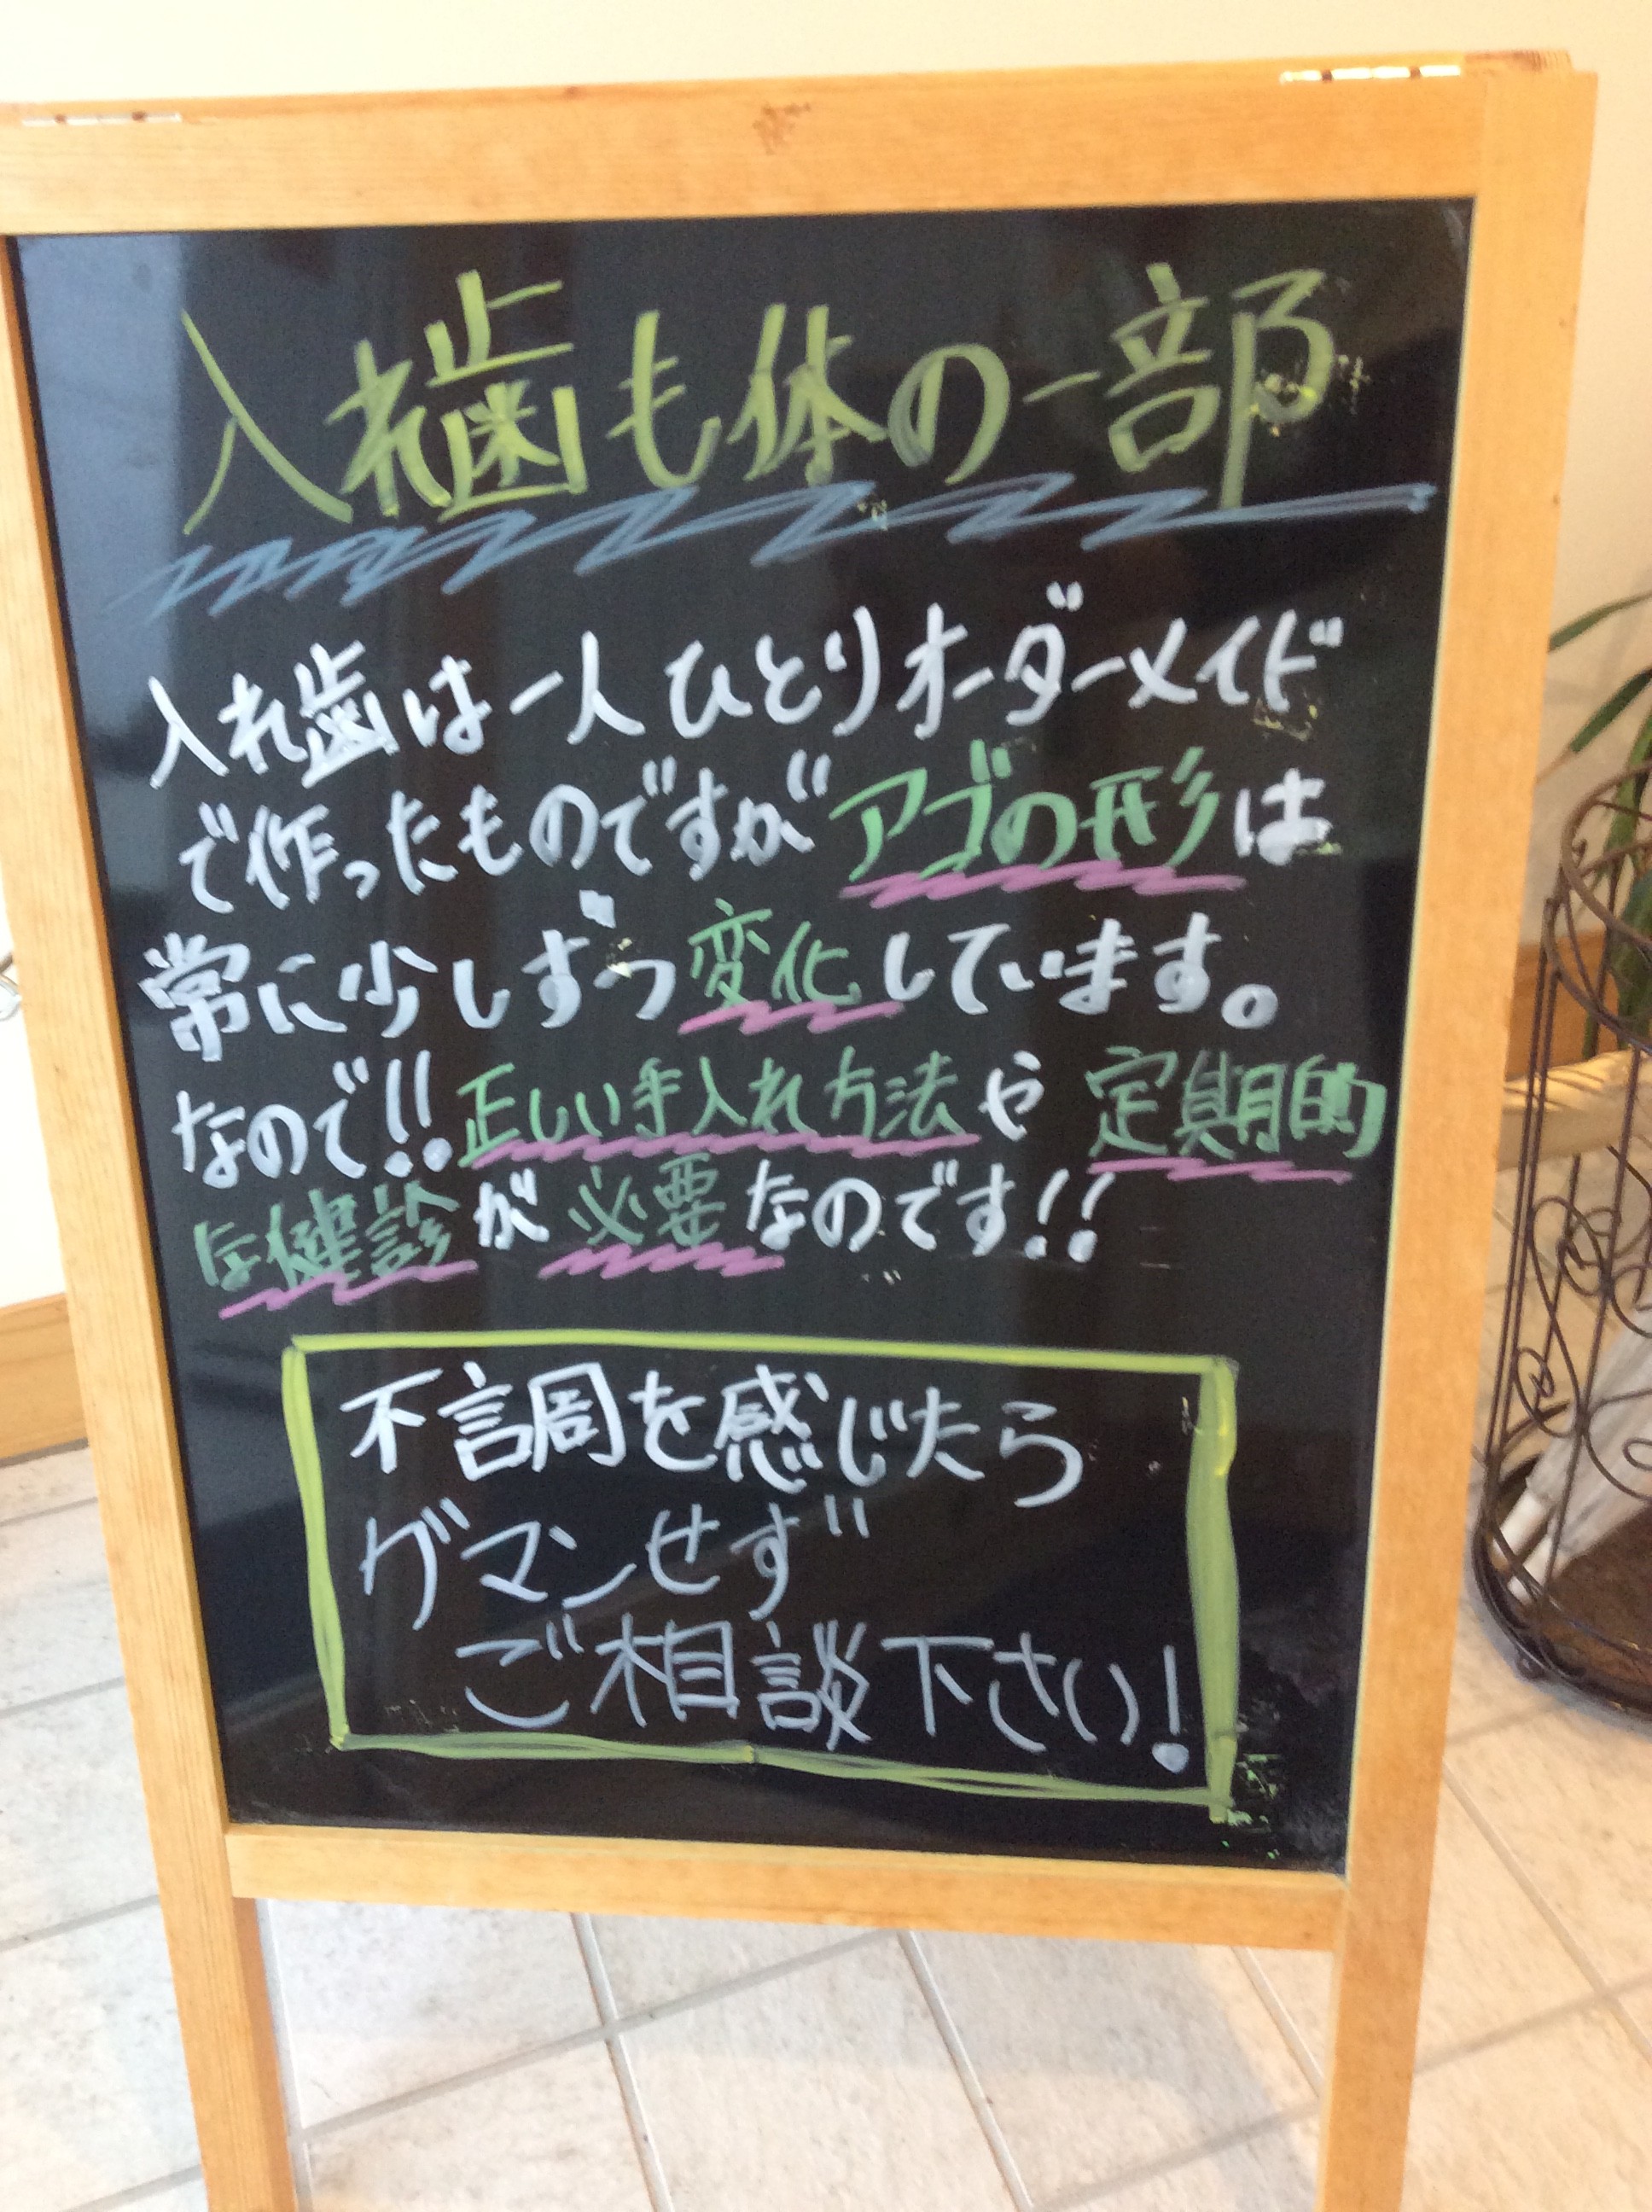 入れ歯も体の一部
入れ歯は一人ひとりオーダーメイド
で作ったものですがアゴの形は
常に少しずつ変化しています。
なので!!正しい手入れ方法や定期的
な健診が必要なのです!!
不調を感じたら
ガマンせず
ご相談下さい!